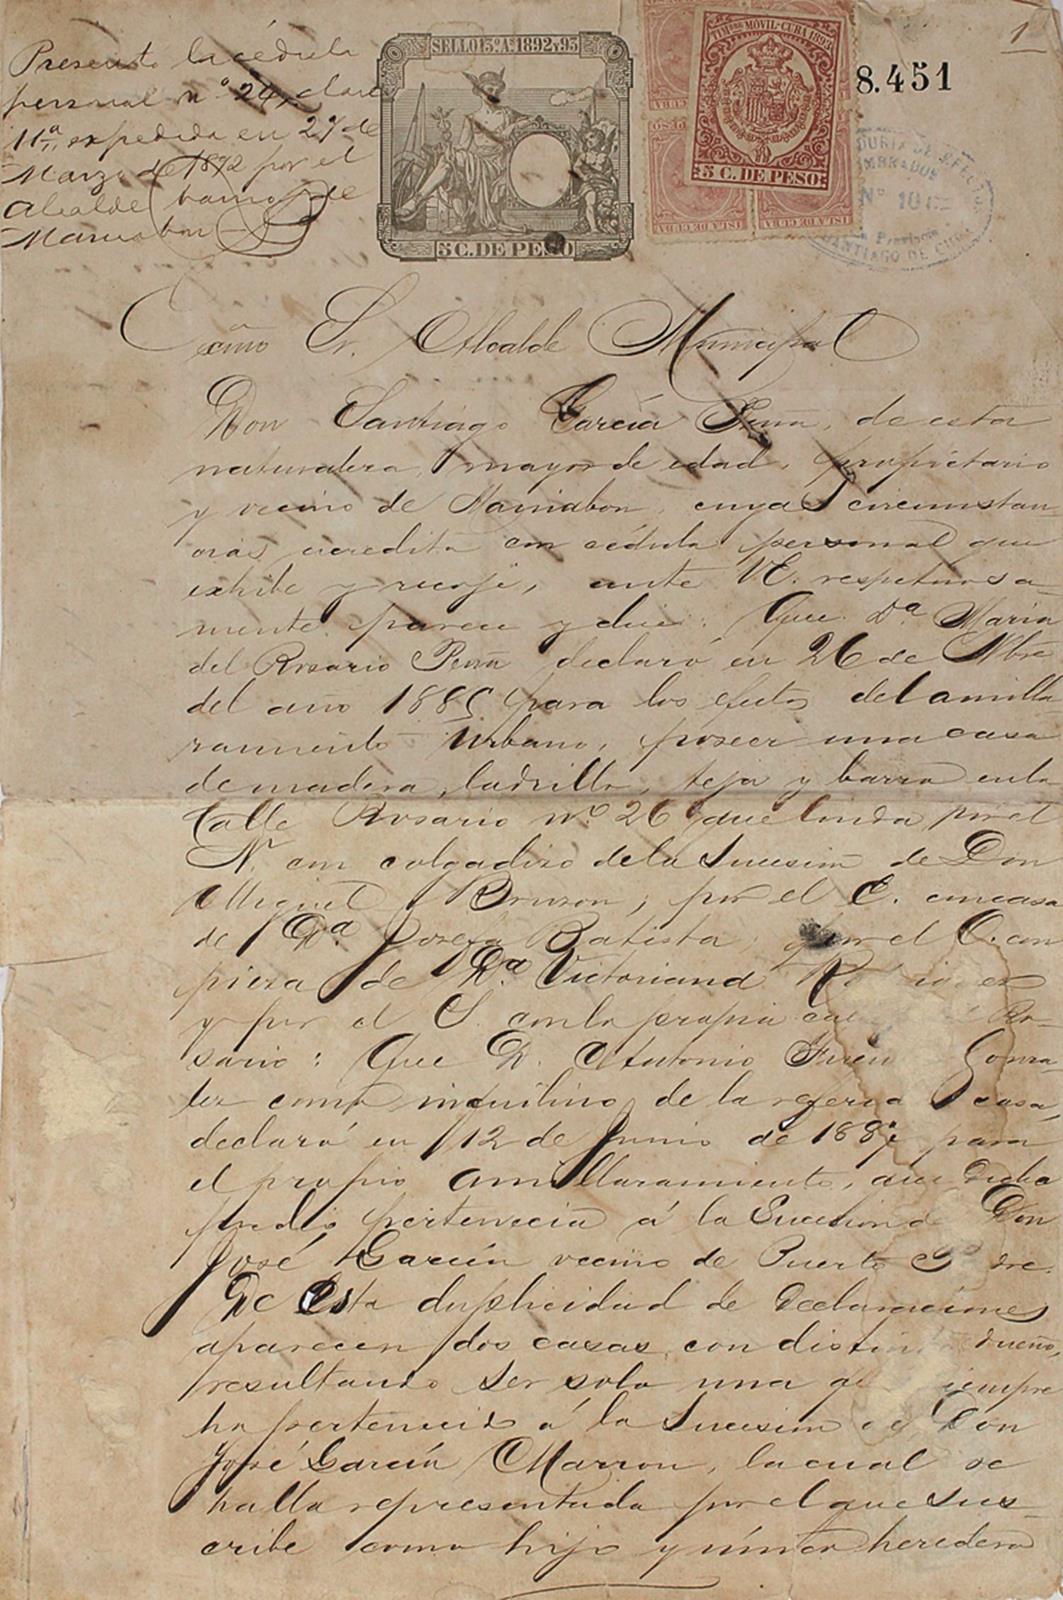 Presento la cédula
personal nº 24, clase
11ª, expedida en 27 de
Marzo de 1892 por el
Alcalde barrio de
Maniabon
SELLO 13º AS 1892 Y 93
5 C. DE PESO
TIMBRE MÓVIL-CUBA 1893
5 C. DE PESO
ISLA DE CUBA
ISLA DE CUBA
8.451
1
Nº
Provincia
SANTIAGO DE CUBA
Excmo Sr. Alcalde Municipal
Don Santiago García Peña, de esta
naturaleza, mayor de edad, propietario
y vecino de Maniabon, cuyas circunstan-
cias acredita con cédula personal que
exhibe y recoje, ante V.E. respetuosa-
mente parece y dice: Que Dª Maria
del Rosario Peña declaró en 26 de Nbre
del año 1885 para los efectos del amilla-
ramiento Urbano, poseer una casa
de madera, ladrillo, teja y barro en la
Calle Rosario nº 26 que linda por el
N. con colgadizo de la Sucesion de Don
Miguel Bruzon; por el E. con casa
de Dª Josefa Batista; por el O. con
pieza de Dª Victoriana
y por el S. con la propia Ro-
sario: Que D. Antonio Gonza-
lez como inquilino de la casa
declaró en 12 de Junio de 188 para
el propio amillaramiento, que dicho
predio pertenecia á la Sucesion de Don
José García vecino de Puerto
De esta duplicidad de declaraciones
aparecen dos casas con dueño,
resultando ser solo una
ha pertenecido á la Sucesion de Don
José García Marron, la cual se
halla representada por el que sus-
cribe como hijo y único heredero